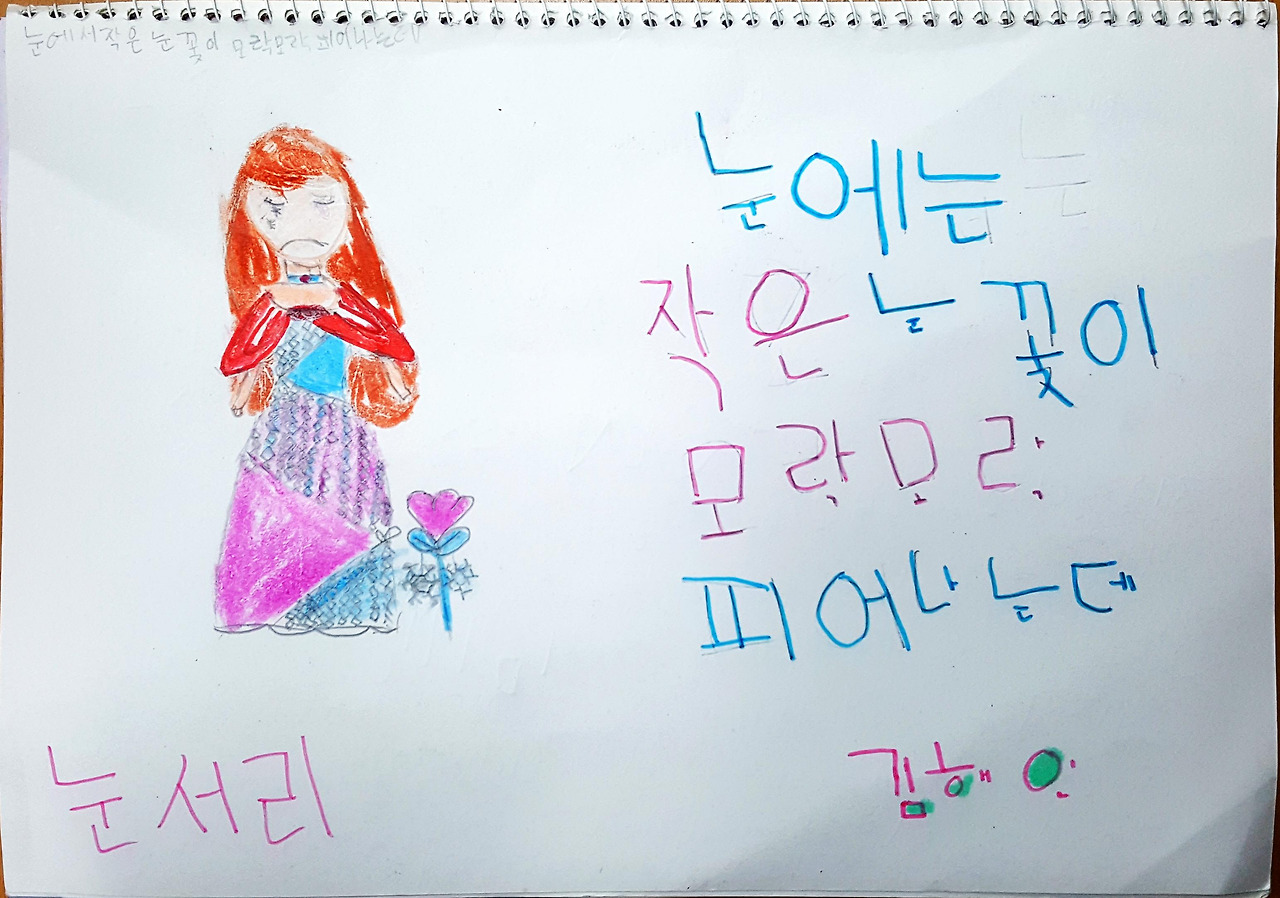 눈에서 작은 눈꽃이 모락모락 피어나는데
눈에는 눈
작은 눈꽃이
모락모락
피어나는데
눈서리
김해인